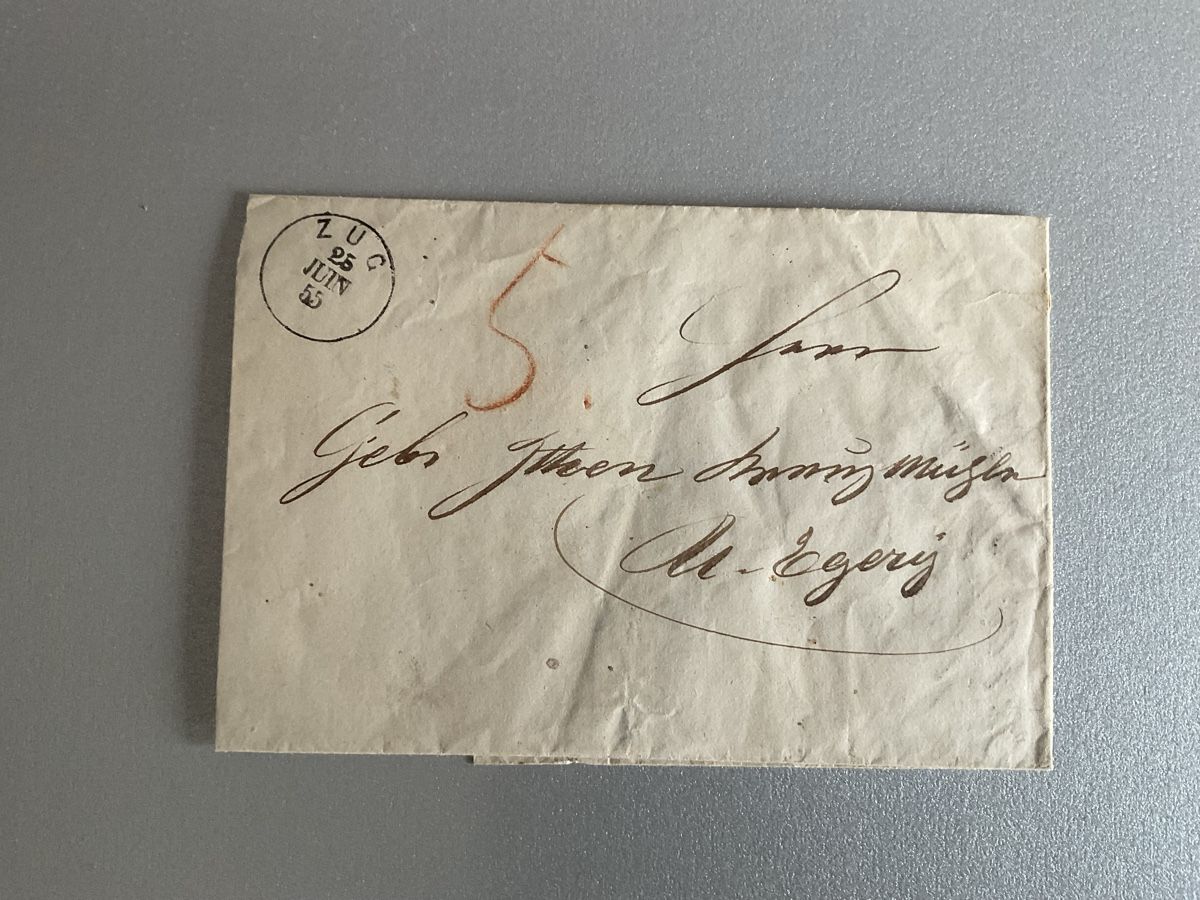 ZUG
25
JUIN
55
5.
Herrn
Gebr Itten
U-Egerÿ